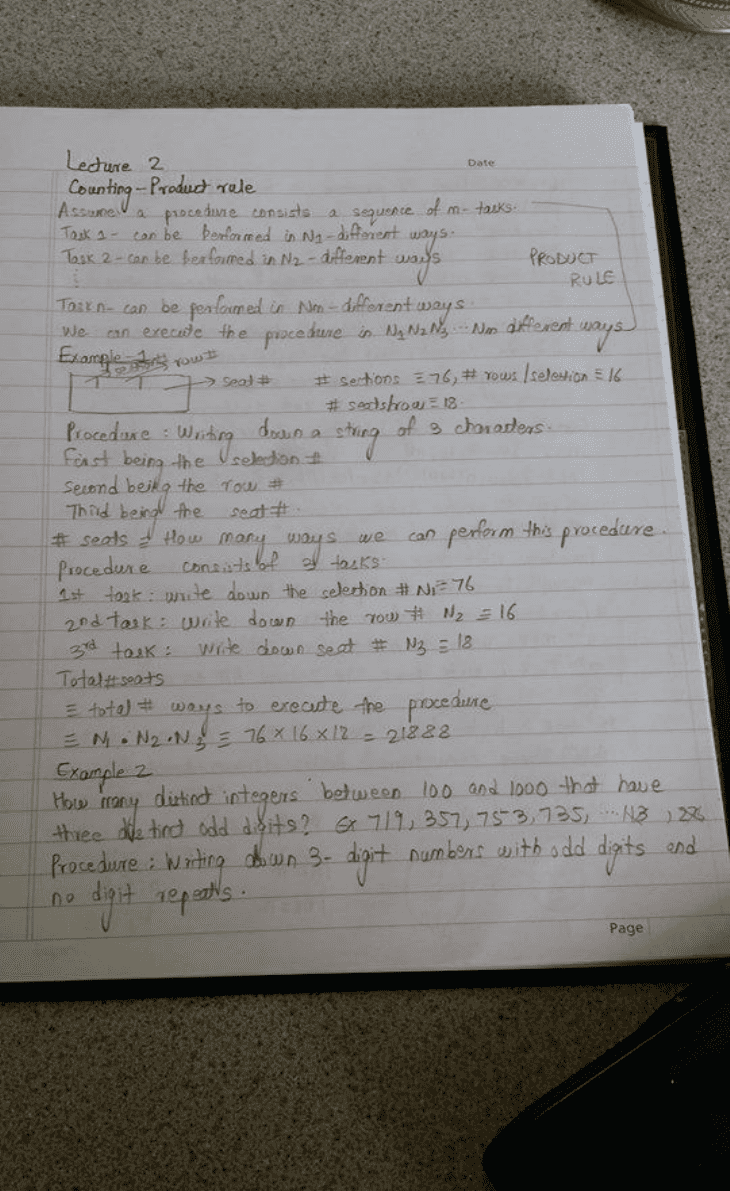 Lecture 2
Date
Counting - Product rule
Assume a procedure consists a sequence of m- tasks.
Task 1 - can be performed in N1 - different ways.
Task 2 - can be performed in N2 - different ways
PRODUCT
RULE
⋮
Task n- can be performed in Nm - different ways.
We can execute the procedure in N1 N2 N3 ... Nm different ways
Example - 1
row #
→ seat #
# sections = 76, # rows / selection = 16
# seats/row = 18.
Procedure : Writing down a string of 3 characters.
First being the selection #
Second being the row #
Third being the seat #.
# seats = How many ways we can perform this procedure.
Procedure consists of 3 tasks.
1st task : write down the selection # N1 = 76
2nd task : write down the row # N2 = 16
3rd task : Write down seat # N3 = 18
Total # seats
= total # ways to execute the procedure
= N1 • N2 • N3 = 76 x 16 x 18 = 21888
Example 2
How many distinct integers between 100 and 1000 that have
three distinct odd digits? Ex 719, 357, 753, 735, ...
Procedure : Writing down 3- digit numbers with odd digits and
no digit repeats.
Page